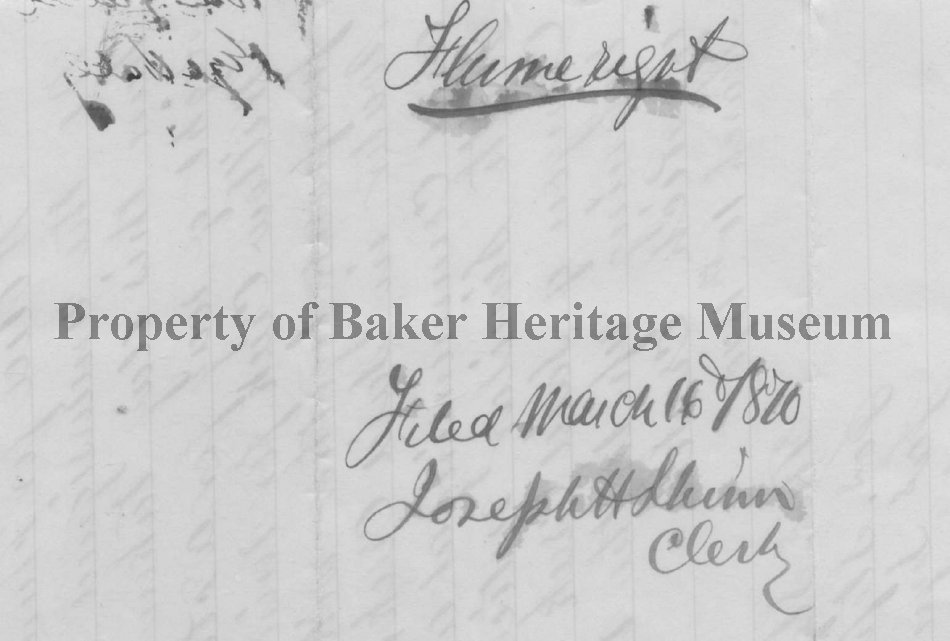 Flume right
Property of Baker Heritage Museum
Filed March 16 1870
Joseph H Shinn
Clerk